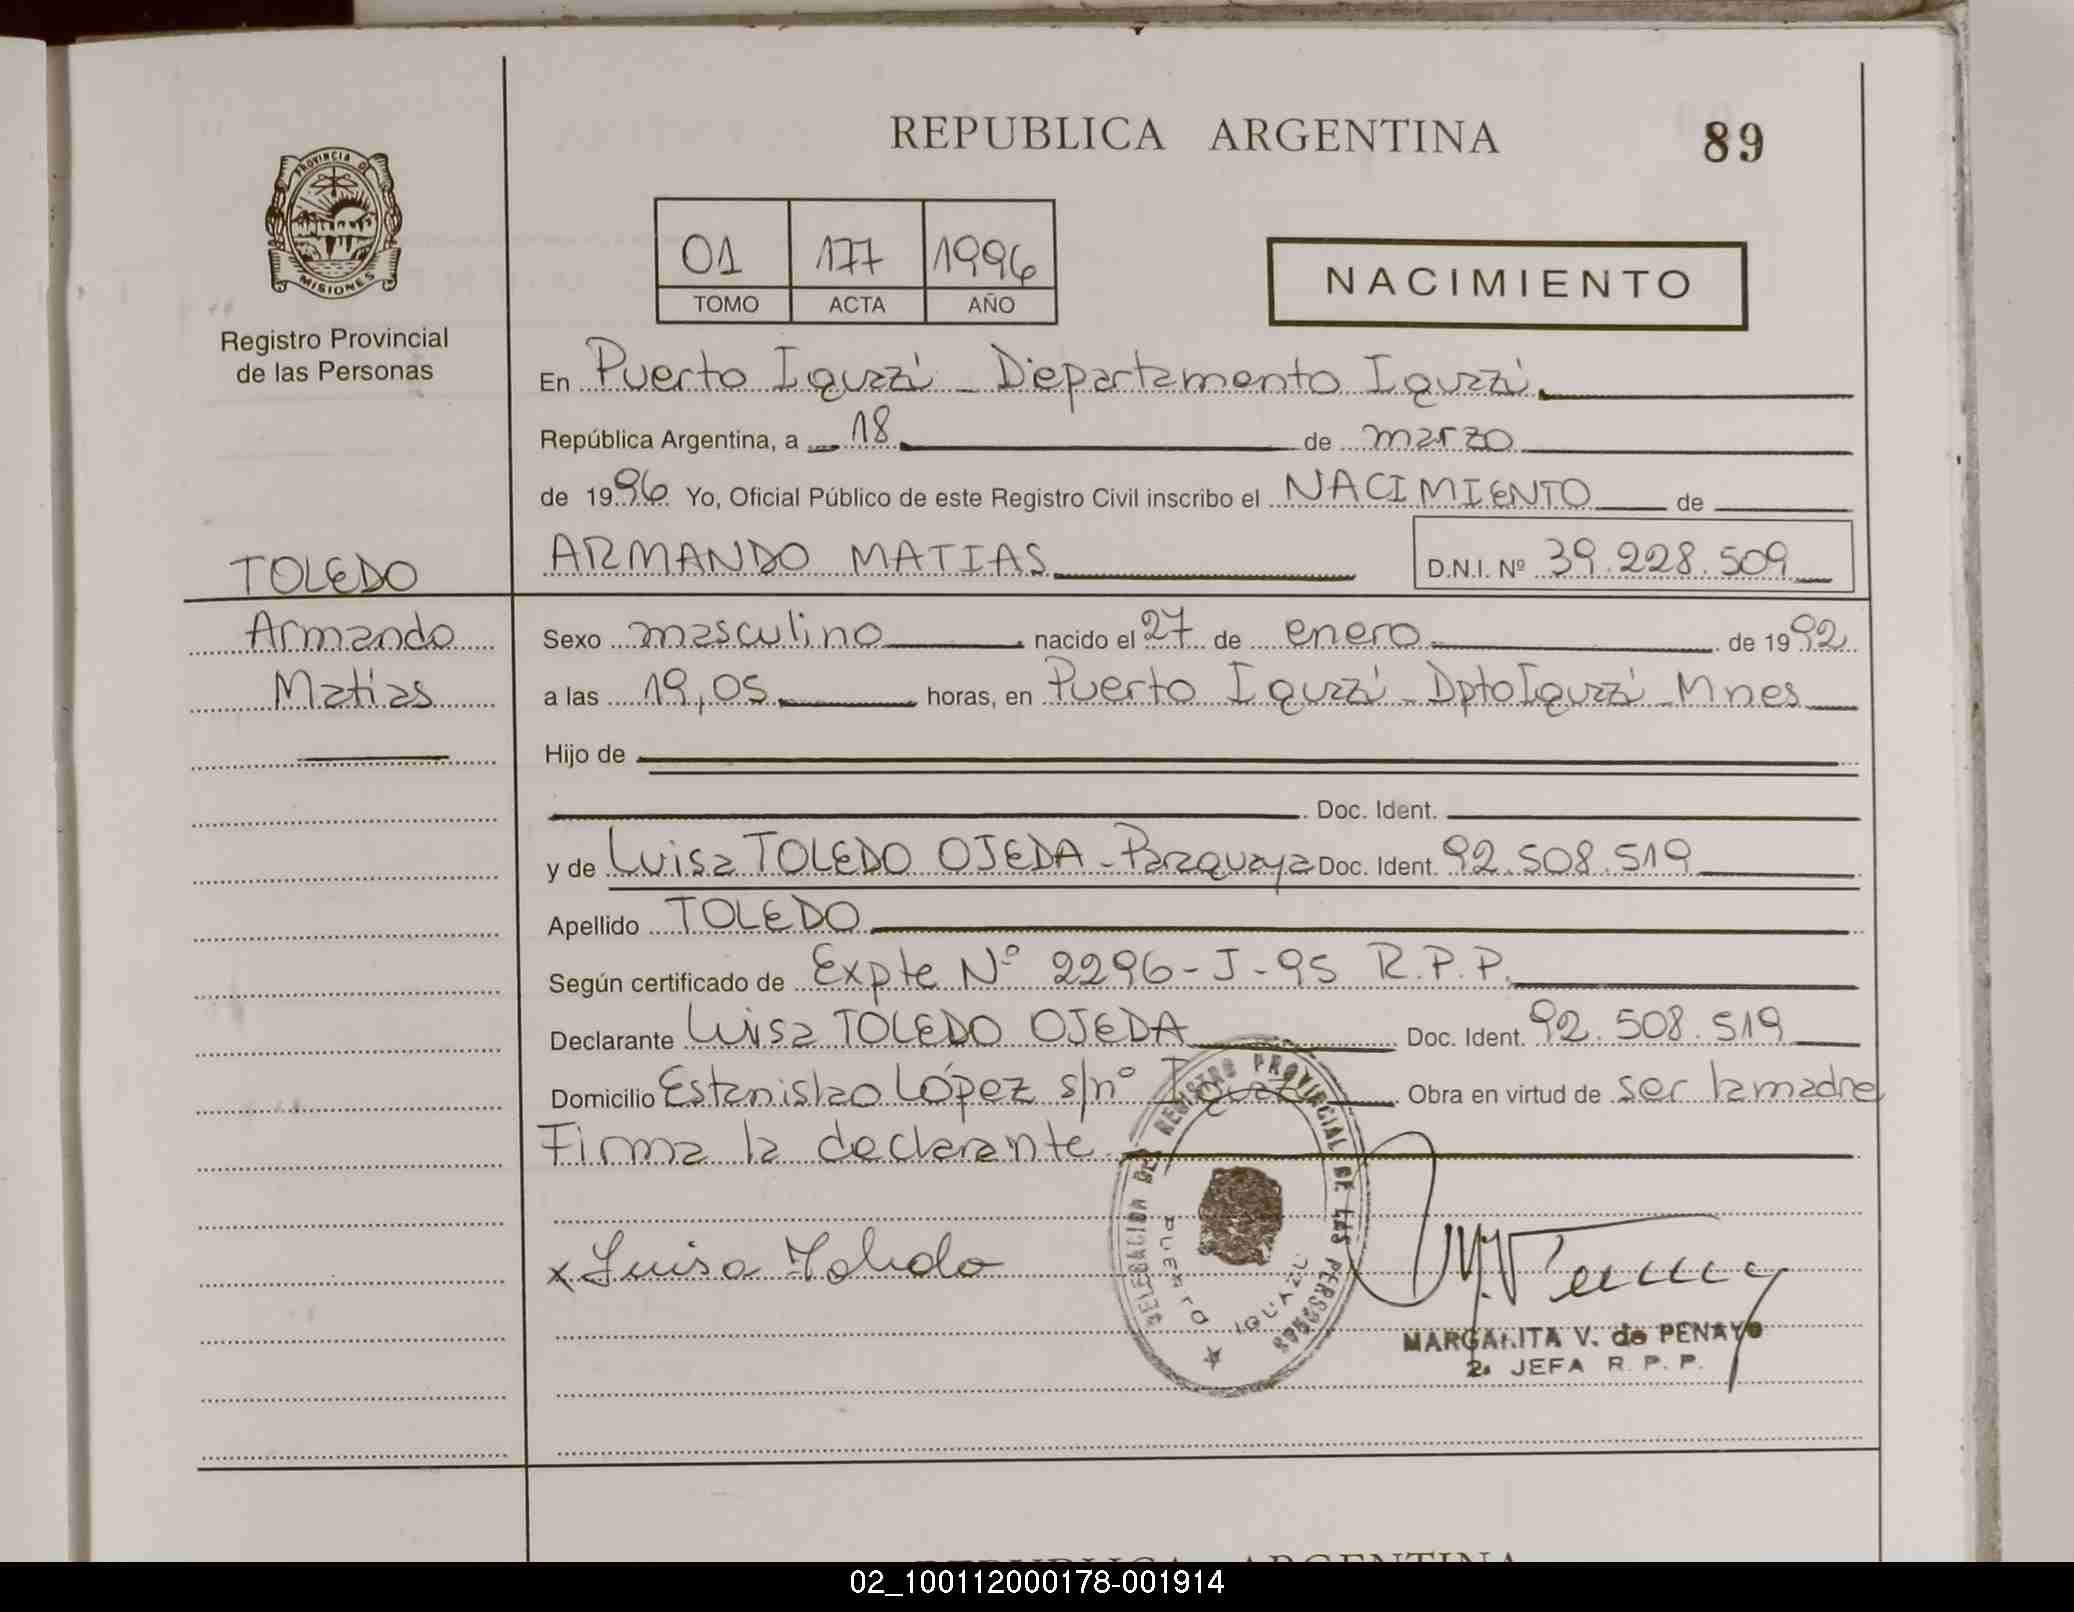 REPUBLICA ARGENTINA
89
PROVINCIA DE
MISIONES
Registro Provincial
de las Personas
01 177 1996
TOMO ACTA AÑO
NACIMIENTO
En Puerto Iguazú - Departamento Iguazú.
República Argentina, a 18 de marzo
de 1996 Yo, Oficial Público de este Registro Civil inscribo el NACIMIENTO de
TOLEDO
ARMANDO MATIAS
D.N.I. Nº 39.228.509
Armando
Matias
Sexo masculino nacido el 27 de enero de 1992
a las 19,05 horas, en Puerto Iguazú - Dpto Iguazú - Mnes
Hijo de
Doc. Ident.
y de Luisa TOLEDO OJEDA - Paraguaya Doc. Ident. 92.508.519
Apellido TOLEDO
Según certificado de Expte Nº 2296-J-95 R.P.P.
Declarante Luisa TOLEDO OJEDA Doc. Ident. 92.508.519
Domicilio Estanislao López s/nº Iguazú Obra en virtud de ser la madre
Firma la declarante.
DELEGACION DEL REGISTRO PROVINCIAL DE LAS PERSONAS
PUERTO IGUAZU
x Luisa Toledo
MARGARITA V. de PENAYO
2ª JEFA R. P. P.
REPUBLICA ARGENTINA
02_100112000178-001914